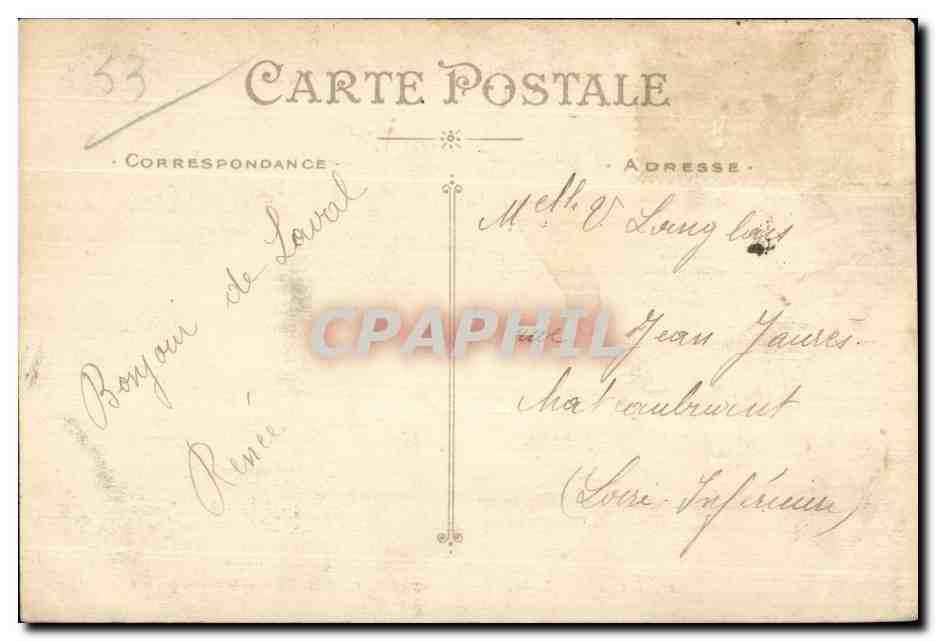 53
CARTE POSTALE
· CORRESPONDANCE ·
Bonjour de Laval
Renée
· ADRESSE ·
Melle V. Langlois
rue Jean Jaurès.
(Loire-Inférieure)
CPAPHIL